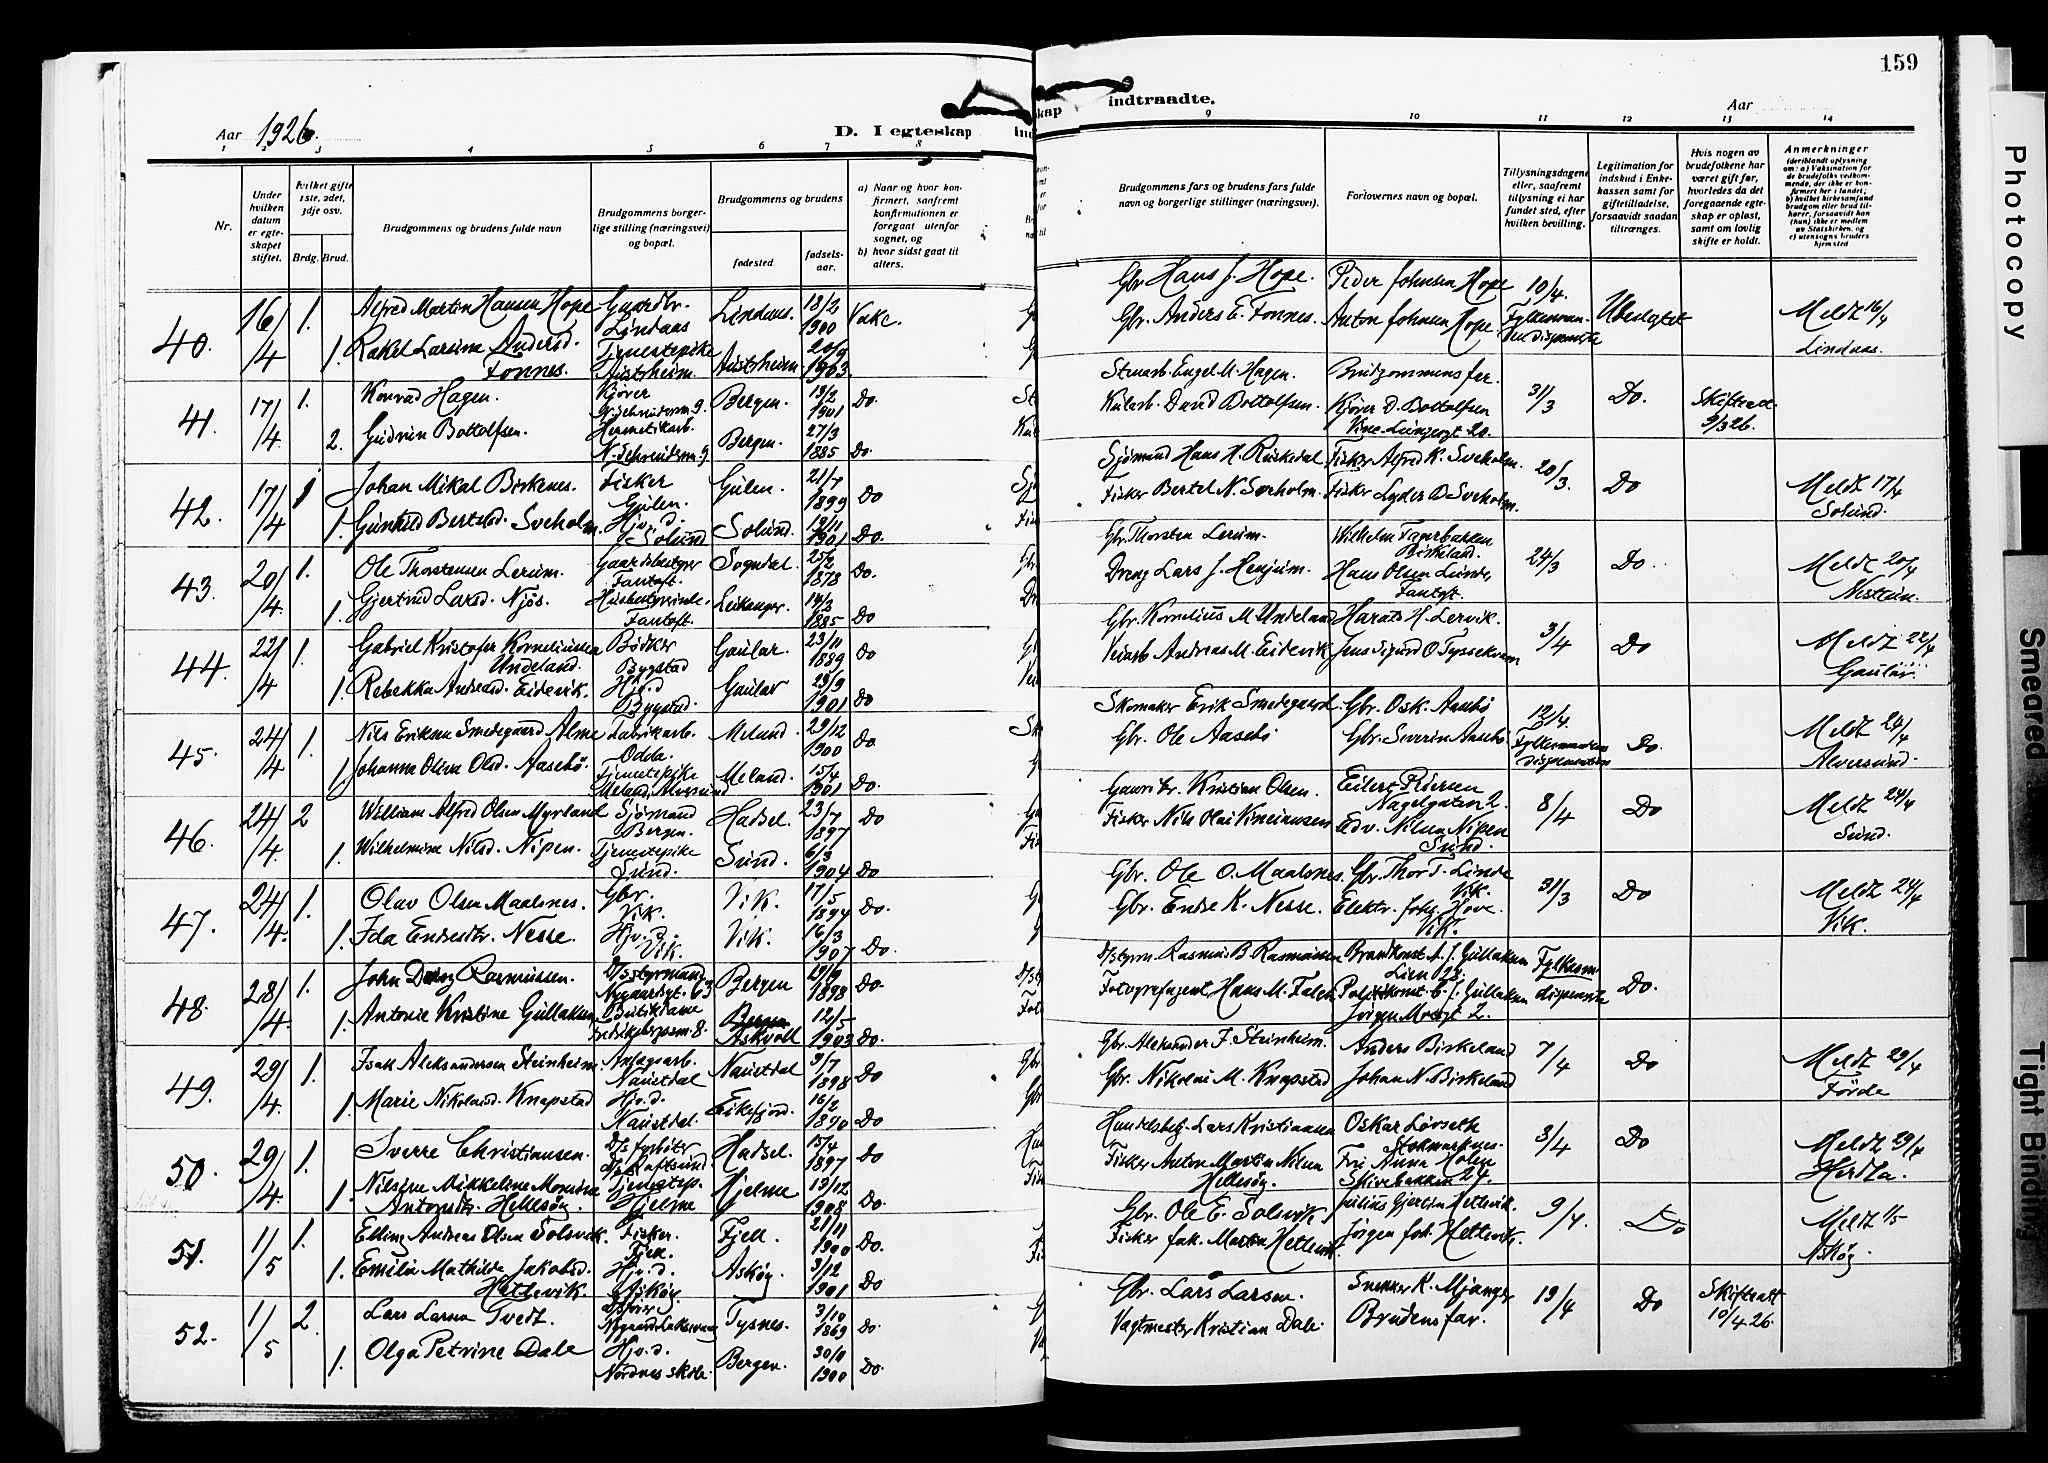 159
Aar 1926.
D. I egteskap
indtraadte.
Aar
1 2 3 4 5 6 7 8
9 10 11 12 13 14
Nr.
Under hvilken datum er egteskapet stiftet.
hvilket gifte 1ste, 2det, 3dje osv.
Brdg. Brud.
Brudgommens og brudens fulde navn
Brudgommens borgerlige stilling (næringsvei) og bopæl.
Brudgommens og brudens
fødested. fødselsaar.
a) Naar og hvor konfirmert, saafremt konfirmationen er foregaat utenfor sognet, og
b) hvor sidst gaat til alters.
Brudgommens fars og brudens fars fulde navn og borgerlige stillinger (næringsvei).
Forlovernes navn og bopæl.
Tillysningsdagene eller, saafremt tillysning ei har fundet sted, efter hvilken bevilling.
Legitimation for indskud i Enkekassen samt for giftetilladelse, forsaavidt saadan tiltrænges.
Hvis nogen av brudefolkene har været gift før, hvorledes da det foregaaende egteskap er opløst, samt om lovlig skifte er holdt.
Anmerkninger
40. 16/4 1. Alfred Martin Hansen Hope Gaardbr. Lindaas Lindaas. 18/2 1900
Gbr. Hans J. Hope. Peder Johnsen Hope 10/4. Ubeslegtet Meldt 16/4 Lindaas.
1. Rakel Larsine Andersd. Fonnes. Tjenestepike Austrheim. Austrheim 20/9 1903.
Gbr. Anders E. Fonnes. Anton Johnsen Hope.
41. 17/4 1. Konrad Hagen. Kjører Bergen. 1901 Do.
Engel M. Hagen. Brudgommens far. 31/3 Do. Skifteatt. 9/3 26.
2. Gudrun Bottolfsen. Hermetikarb. Bergen. 27/3 1885 Do.
David Bottolfsen. Kjører D. Bottolfsen
42. 17/4 1 Johan Mikal Birkenes. Fisker Gulen. Gulen. 21/7 1899 Do
Sjömand Hans H. Fisker Alfred K. Sveholm. 20/3. Do Meldt 17/4 Solund.
1. Gunhild Bertelsd. Sveholm. Hjv. d. Solund Solund. 1901 Do.
Fisker Bertel N. Fisker Lyder D. Sveholm.
43. 20/4. 1. Ole Thorstensen Lerum. Gaardbestyrer Fantoft. Sogndal. 25/2 1878 Do.
Gbr. Thorsten Lerum. Wilhelm Birkeland. 24/3 Do. Meldt 20/4
1. Gjertrud Larsd. Njøs. Fantoft Leikanger. 14/3 1885 Do
Dreng Lars J. Henjum. Hans Olsen Lunde, Fantoft.
44. 22/4 1. Gabriel Kristofer Korneliussen Undeland. Bødker Bygstad Gaular. 23/11 1889 Do
Gbr. Kornelius M. Undeland H. Lervik. 3/4 Do Meldt 22/4 Gaular.
1. Rebekka Andreasd. Eidevik. Hjv. d Bygstad. Gaular 29/9 1901 Do
Andreas M. Eidevik Jens Sigurd O. Tyssekvam
45. 24/4 1. Nils Eriksen Smedegaard Alme Fabrikarb. Odda. Meland. 29/12 1900 Do.
Skomaker Erik Smedegaard. Gbr. Osk. Aasebö 12/4. Do. Meldt 24/4 Alversund.
1 Johanna Olina Olsd. Aasebö. Tjenestepike Meland, Alversund Meland. 15/4 1901 Do.
Gbr. Ole Aasebö Gbr. Severin Aasebö
46. 24/4. 2 William Alfred Olsen Myrland Sjömand Bergen. Hadsel. 23/7 1897 Do
Kristian Olsen. Eilert Pedersen Nagelgaten 2. 8/4 Do Meldt 24/4 Sund.
1. Wilhelmine Nilsd. Nipen. Tjenestepike Sund. Sund. 6/3 1904 Do
Fisker Nils Olai Edv. Nilsen Nipen Sund.
47. 24/4. 1. Olav Olsen Maalsnes. Gbr. Vik. Vik. 17/5 1894 Do.
Gbr. Ole O. Maalsnes. Gbr. Thor T. Linde Vik. 31/3 Do Meldt 24/4 Vik.
1. Ida Endresdtr. Nesse. Hjv. d. Vik. Vik. 16/3 1907 Do.
Gbr. Endre K. Nesse. Elektr. Joh. Hove. Vik.
48. 28/4. 1. John Rasmussen. D/sstyrmand Nygaardsgt. 63 Bergen 1898 Do.
D/styrm. Rasmus B. Rasmussen Brandkonst. A. J. Gullaksen Lien 28. Do.
1. Antonie Kristine Gullaksen Butikdame Askvoll 12/5 1903 Do.
Fotografagent Hans M. Falch Politikonst. C. J. Gullaksen Jørgen Moesgt 2.
49. 29/4. 1. Isak Aleksandersen Steinheim Anlagsarb. Naustdal Naustdal 9/7 1898 Do
Gbr. Aleksander J. Steinheim. Anders Birkeland 7/4 Do Meldt 29/4 Förde
1. Marie Nikolaisd. Knapstad Hjv. d. Naustdal. Eikefjord. 16/2 1890 Do
Gbr. Nikolai M. Knapstad Johan N. Birkeland
50. 29/4. 1. Sverre Christiansen. D/s fyrböter D/s Raftsund Hadsel. 15/4 1897 Do
Lars Kristiansen Oskar Lorseth Stokmarknes. 3/4 Do Meldt 29/4 Herdla.
1. Nilsine Mikkeline Monsine Antonsdtr. Hellesöy. Tjenestep. Hjelme Hjelme 13/12 1908 Do.
Fisker Anton Martin Nilsen Hellesöy. Frk. Anna Holm Skivebakken 27.
51. 1/5 1. Elling Andreas Olsen Solsvik. Fisker. Fjell. Fjell. 21/11 1900 Do.
Gbr. Ole E. Solsvik Julius Gjertsen Hettevik. 9/4. Do Meldt 1/5 Askøy.
1. Emilie Mathilde Jakobsd. Hettevik. Hjv. d. Askøy Askøy. 3/12 1901 Do
Fisker Jak. Hettevik Jørgen Joh. Hettevik.
52. 1/5 2. Lars Larsen Tvedt. Tysnes. 3/10 1869 Do.
Gbr. Lars Larsen. Snekker K. Mjanger 19/4 Do Skifteatt 10/4 26.
1. Olga Petrine Dale Hjv. d. Nordnes skole. Bergen. 1900 Do.
Vagtmester Kristian Dale. Brudens far.
Photocopy
Smeared
Tight Binding